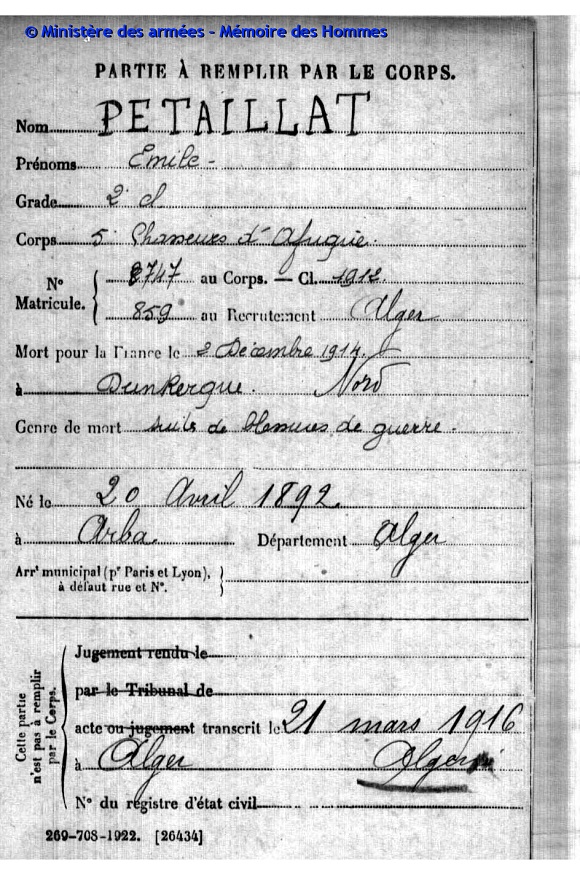 © Ministère des armées - Mémoire des Hommes
PARTIE À REMPLIR PAR LE CORPS.
Nom PETAILLAT
Prénoms Emile -
Grade 2e cl
Corps 5e Chasseurs d'Afrique.
N° Matricule. { 8747 au Corps. — Cl. 1912
859 au Recrutement Alger
Mort pour la France le 2 Décembre 1914
à Dunkerque. Nord
Genre de mort suite de blessures de guerre.
Né le 20 Avril 1892
à Arba. Département Alger
Arrt municipal (pr Paris et Lyon), à défaut rue et N°. }
Cette partie n'est pas à remplir par le Corps. {
Jugement rendu le
par le Tribunal de
acte ou jugement transcrit le 21 mars 1916
à Alger
N° du registre d'état civil
269-708-1922. [26434]